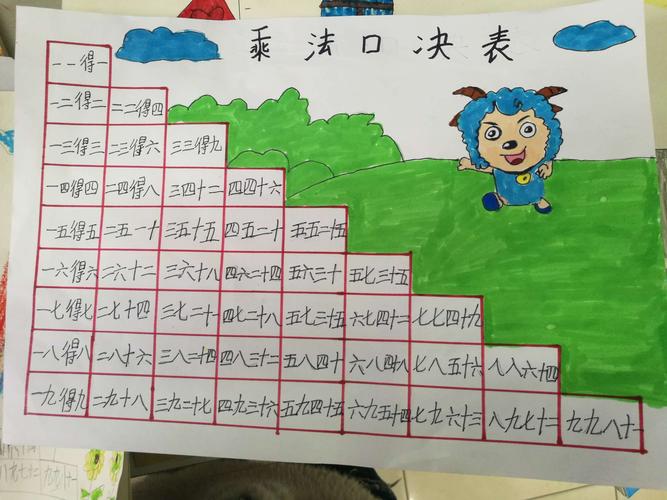 乘法口决表
一一得一
一二得二 二二得四
一三得三 二三得六 三三得九
一四得四 二四得八 三四十二 四四十六
一五得五 二五一十 三五十五 四五二十 五五二十五
一六得六 二六十二 三六十八 四六二十四 五六三十 五七三十五
一七得七 二七十四 三七二十一 四七二十八 五七三十五 六七四十二 七七四十九
一八得八 二八十六 三八二十四 四八三十二 五八四十 六八四十八 七八五十六 八八六十四
一九得九 二九十八 三九二十七 四九三十六 五九四十五 六九五十四 七九六十三 八九七十二 九九八十一
八九七十二 九九八十一